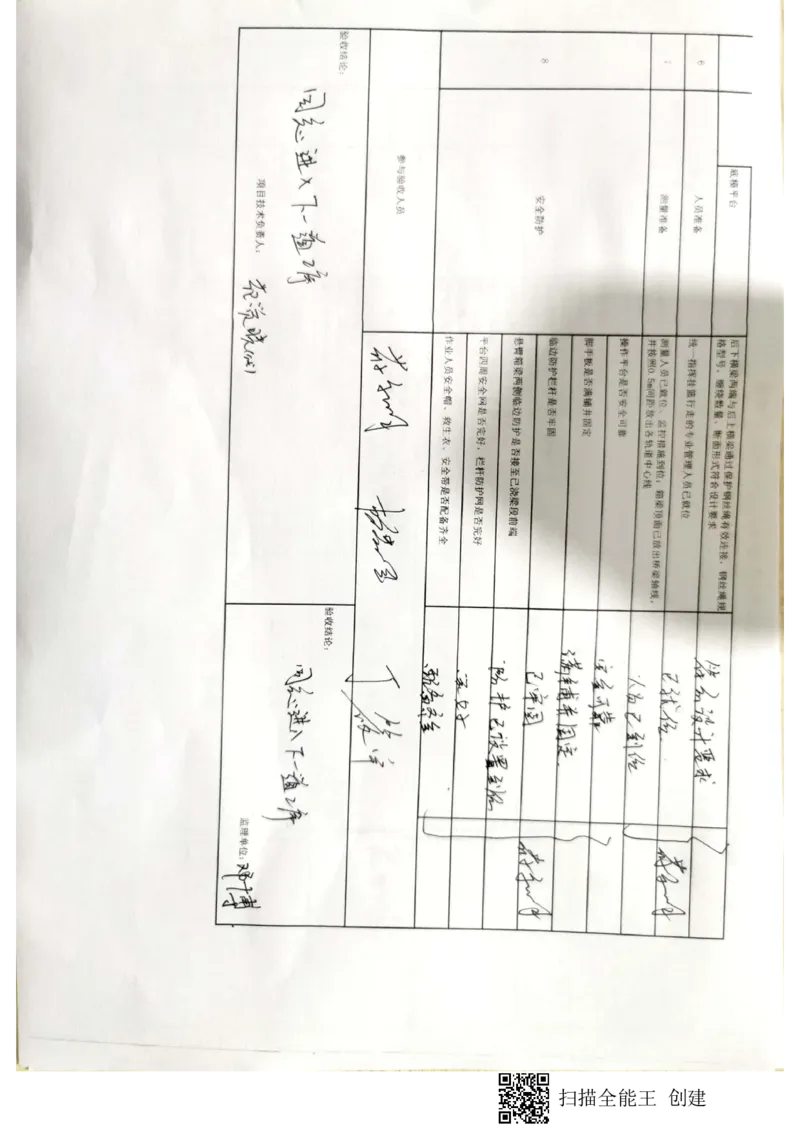 底模平台
后下横梁两端与后上横梁通过保护钢丝绳有效连接，钢丝绳规
格型号、缠绕数量、断面形式符合设计要求
符合设计要求
6
人员准备
统一指挥挂篮行走的专业管理人员已就位
已就位
7
测量准备
测量人员已就位、监控措施到位；箱梁顶面已放出桥梁轴线，
并按照0.5m间距放出各轨道中心线
人员已到位
8
安全防护
操作平台是否安全可靠
安全可靠
脚手板是否满铺并固定
满铺并固定
临边防护栏杆是否牢固
已牢固
悬臂箱梁两侧临边防护是否接至已浇梁段前端
防护已设置到位
平台四周安全网是否完好，栏杆防护网是否完好
完好
作业人员安全帽、救生衣、安全带是否配备齐全
配备齐全
参与验收人员
验收结论：
同意进入下一道工序
项目技术负责人：
验收结论：
同意进入下一道工序
监理单位：
扫描全能王 创建